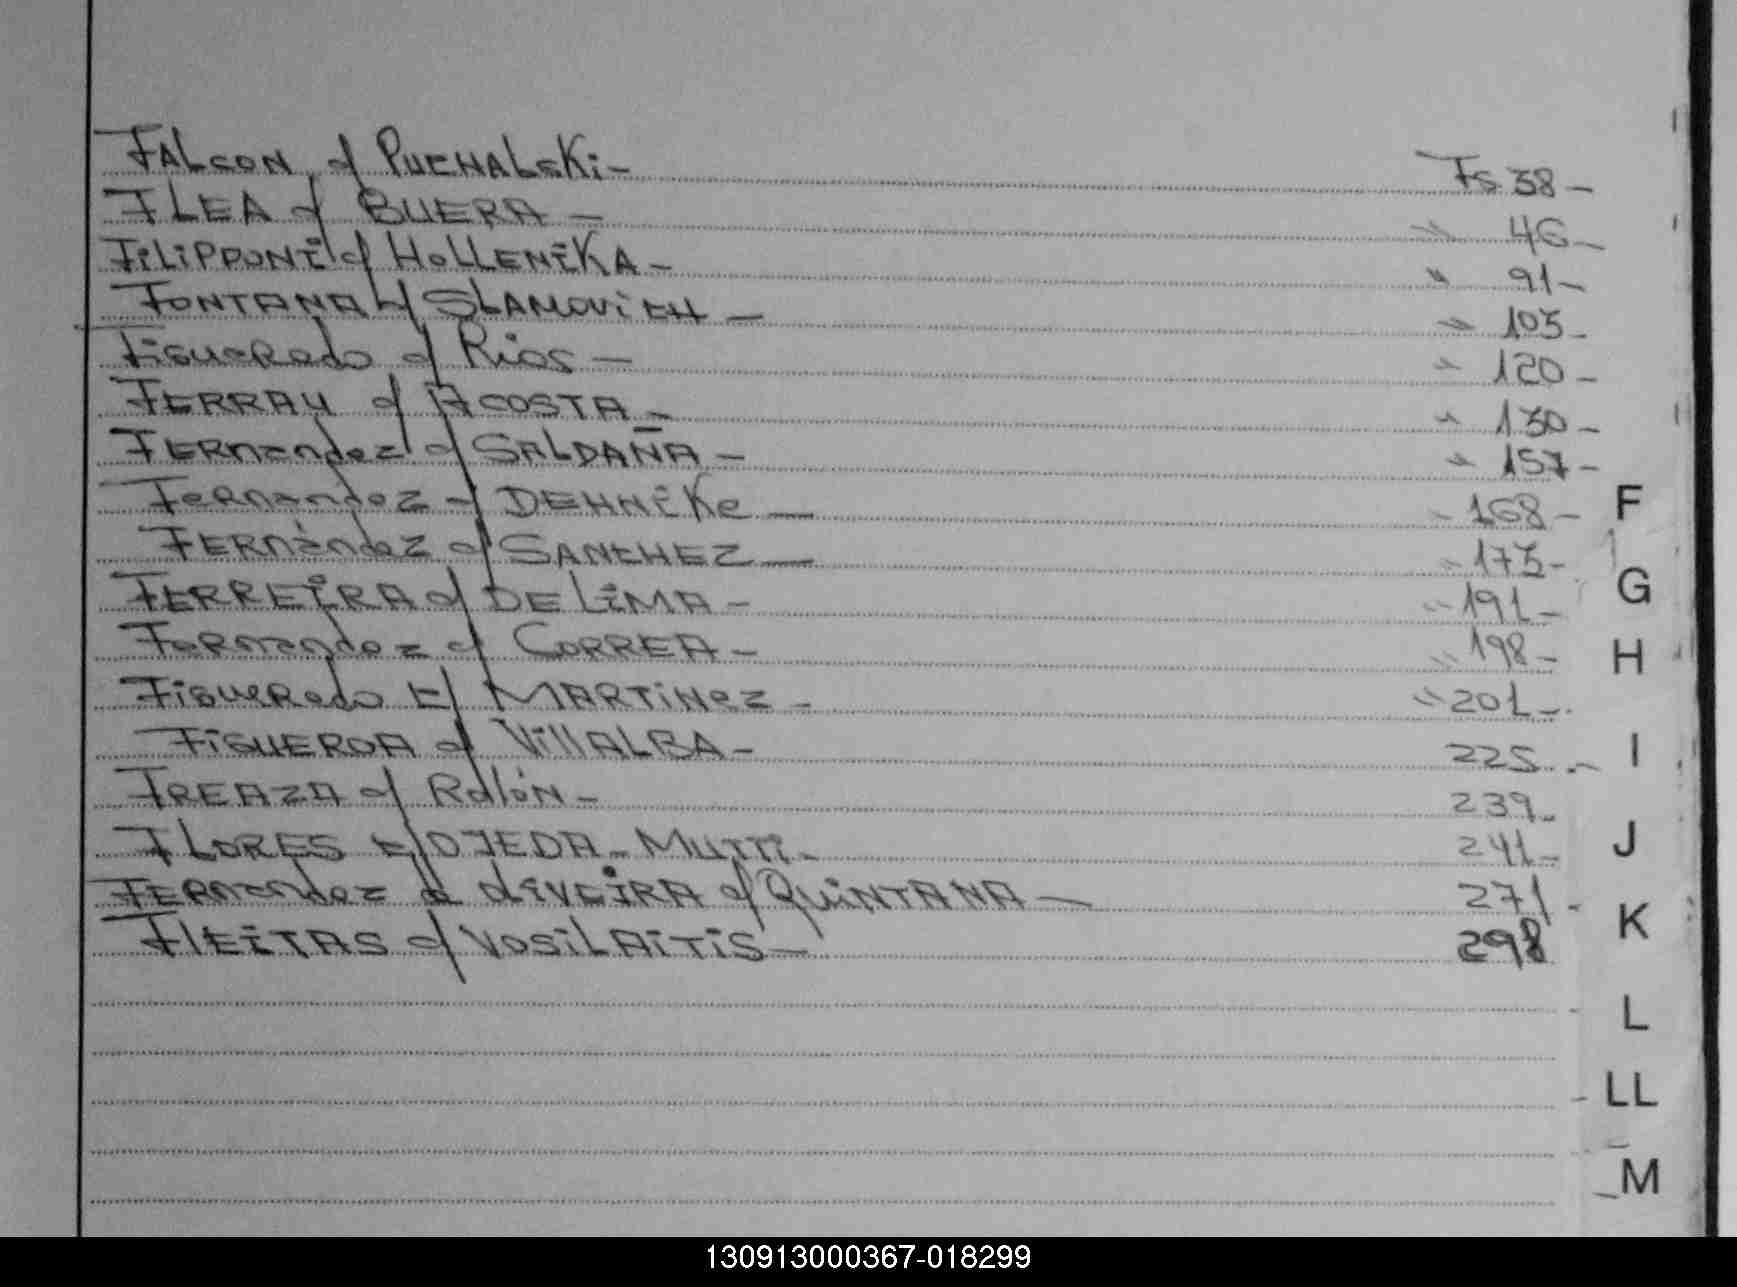 FALCON c/ PUCHALSKi - Fs 38 -
FLEA c/ BUERA - " 46 -
FiLiPPONi c/ HOLLENiKA - " 91 -
FONTANA c/ SLAMOViCH - " 105 -
FiGUeRedo c/ Rios - " 120 -
FERRAU c/ ACOSTA - " 130 -
FERnandez c/ SALDAÑA - " 157 -
FeRnandez c/ DEHNiKe - " 168 -
FERnández c/ SANCHEZ - " 175 -
FERREiRA c/ DE LiMA - " 191 -
FeRnandez c/ CORREA - " 198 -
FiGUeRedo c/ MARTiNez - " 201 -
FiGUEROA c/ VillALBA - 225 -
FREAZA c/ Rolón - 239 -
FLORES c/ OJEDA - MUTTi - 241 -
FERnandez de OLiVEiRA c/ QUiNTANA - 271 -
FlEiTAS c/ VOSiLAiTiS - 298
F
G
H
I
J
K
L
LL
M
130913000367-018299